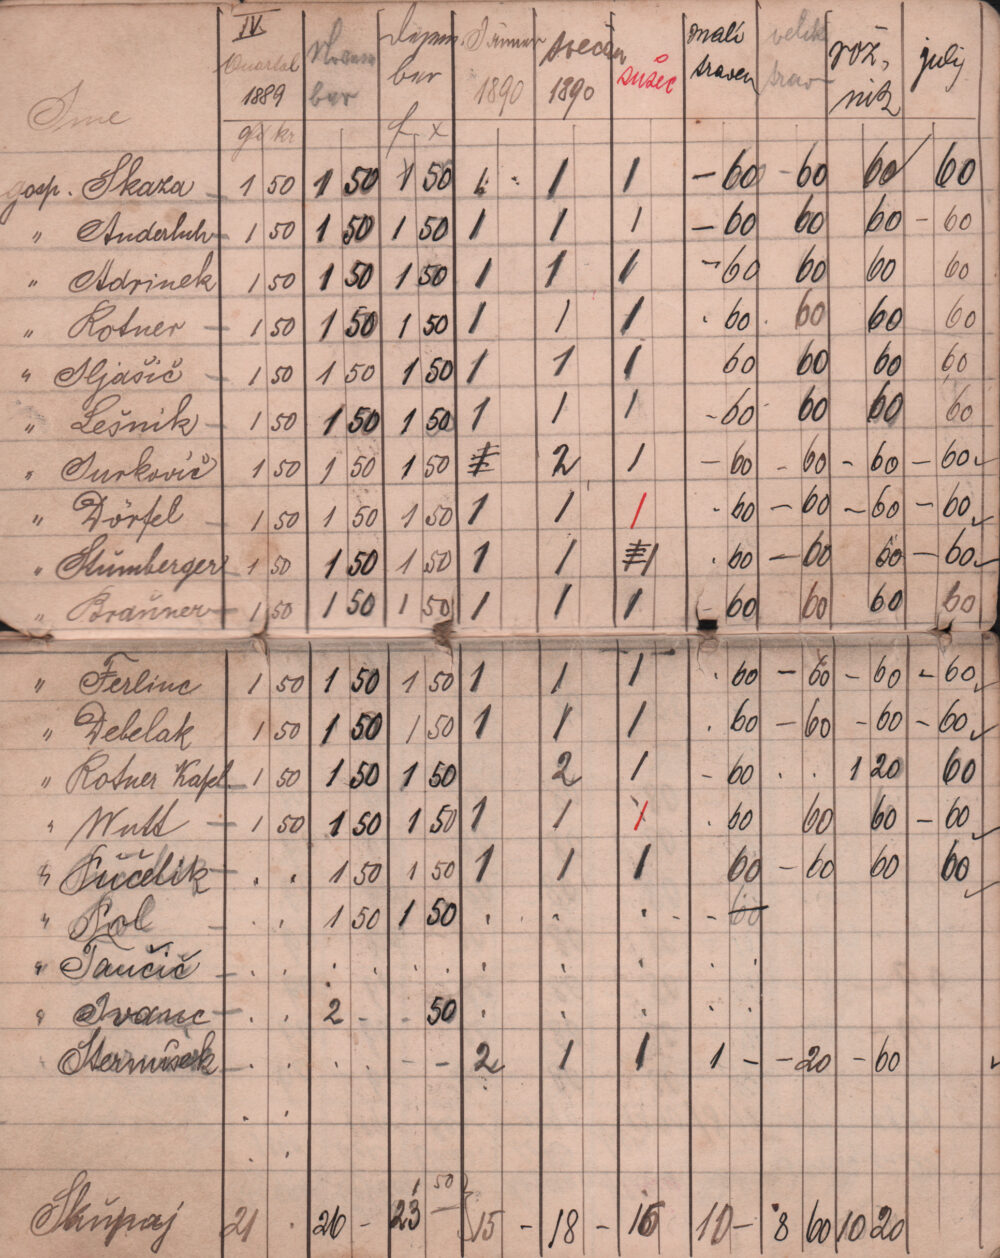 Ime IV. Quartal 1889 November Dezem ber Jänner 1890 svečan 1890 sušec mali traven velik trav rož, nik julij
gl kr f. x
gosp. Skaza - 1 50 1 50 1 50 1 1 1 - 60 - 60 60 60
" Anderluh - 1 50 1 50 1 50 1 1 1 - 60 60 60 - 60
" Adrinek 1 50 1 50 1 50 1 1 1 - 60 60 60 60
" Kotner - 1 50 1 50 1 50 1 1 1 . 60 . 60 60 60
" Iljašič - 1 50 1 50 1 50 1 1 1 60 60 60 60
" Lešnik - 1 50 1 50 1 50 1 1 1 - 60 60 60 60
" Jurkovič 1 50 1 50 1 50 2 1 - 60 - 60 - 60 - 60
" Dörfel - 1 50 1 50 1 50 1 1 1 . 60 - 60 - 60 - 60
" Stumberger 1 50 1 50 1 50 1 1 1 . 60 - 60 60 - 60
" Brauner - 1 50 1 50 1 50 1 1 1 - 60 60 60 60
" Ferlinc 1 50 1 50 1 50 1 1 1 . 60 - 60 - 60 - 60
" Debelak 1 50 1 50 1 50 1 1 1 . 60 - 60 - 60 - 60
" Kotner Kapl. - 1 50 1 50 1 50 2 1 - 60 . . 1 20 60
" Wutt - 1 50 1 50 1 50 1 1 1 . 60 60 60 - 60
" Fučelik - . . 1 50 1 50 1 1 1 60 - 60 60 60
" Kol . . 1 50 1 50 . . . . - - 60
" Tančič - . . . . . . . . . . .
" Ivanc - . . 2 - - 50 . . . . .
Stermšek - . . . . - - 2 1 1 1 - - 20 - 60
Skupaj 21 . 26 - 23 1 50 15 - 18 - 16 10 - 8 60 10 20